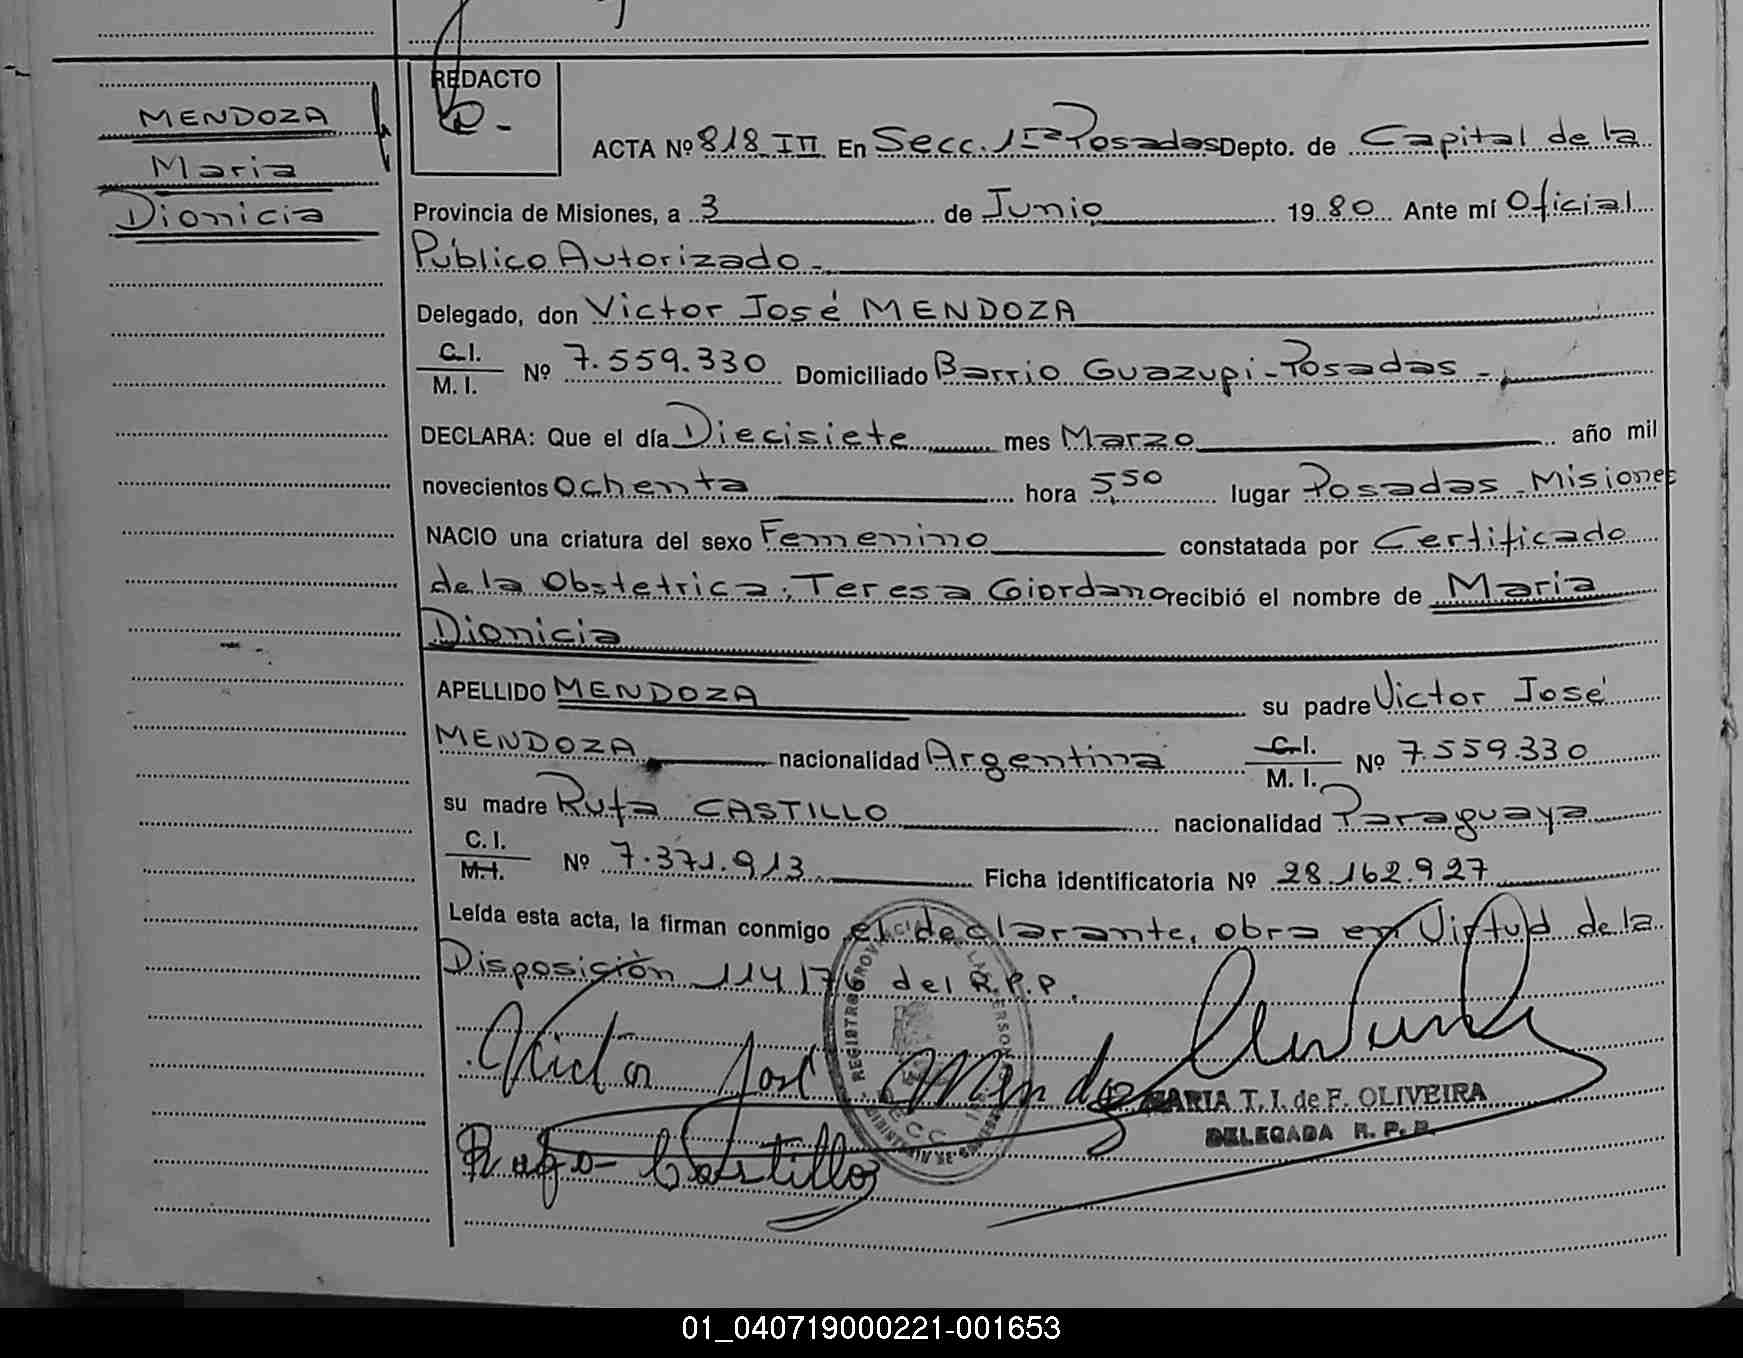 REDACTO
MENDOZA
Maria
Dionicia
ACTA Nº 818 III En Secc. 1ra Posadas Depto. de Capital de la
Provincia de Misiones, a 3 de Junio 1980 Ante mí Oficial
Público Autorizado -
Delegado, don Victor José MENDOZA
C.I.
M. I. Nº 7.559.330 Domiciliado Barrio Guazupi - Posadas -
DECLARA: Que el día Diecisiete mes Marzo año mil
novecientos Ochenta hora 5,50 lugar Posadas - Misiones
NACIO una criatura del sexo Femenino constatada por Certificado
de la Obstetrica; Teresa Giordano recibió el nombre de Maria
Dionicia
APELLIDO MENDOZA su padre Victor José
MENDOZA nacionalidad Argentina C.I. M. I. Nº 7.559.330
su madre Rufa CASTILLO nacionalidad Paraguaya
C. I.
M.I. Nº 7.371.913 Ficha identificatoria Nº 28.162.927
Leída esta acta, la firman conmigo el declarante, obra en Virtud de la
Disposición 114/76 del R.P.P.
Victor José Mendoza
MARIA T. I. de F. OLIVEIRA
DELEGADA R. P. P.
Rufa Castillo
01_040719000221-001653